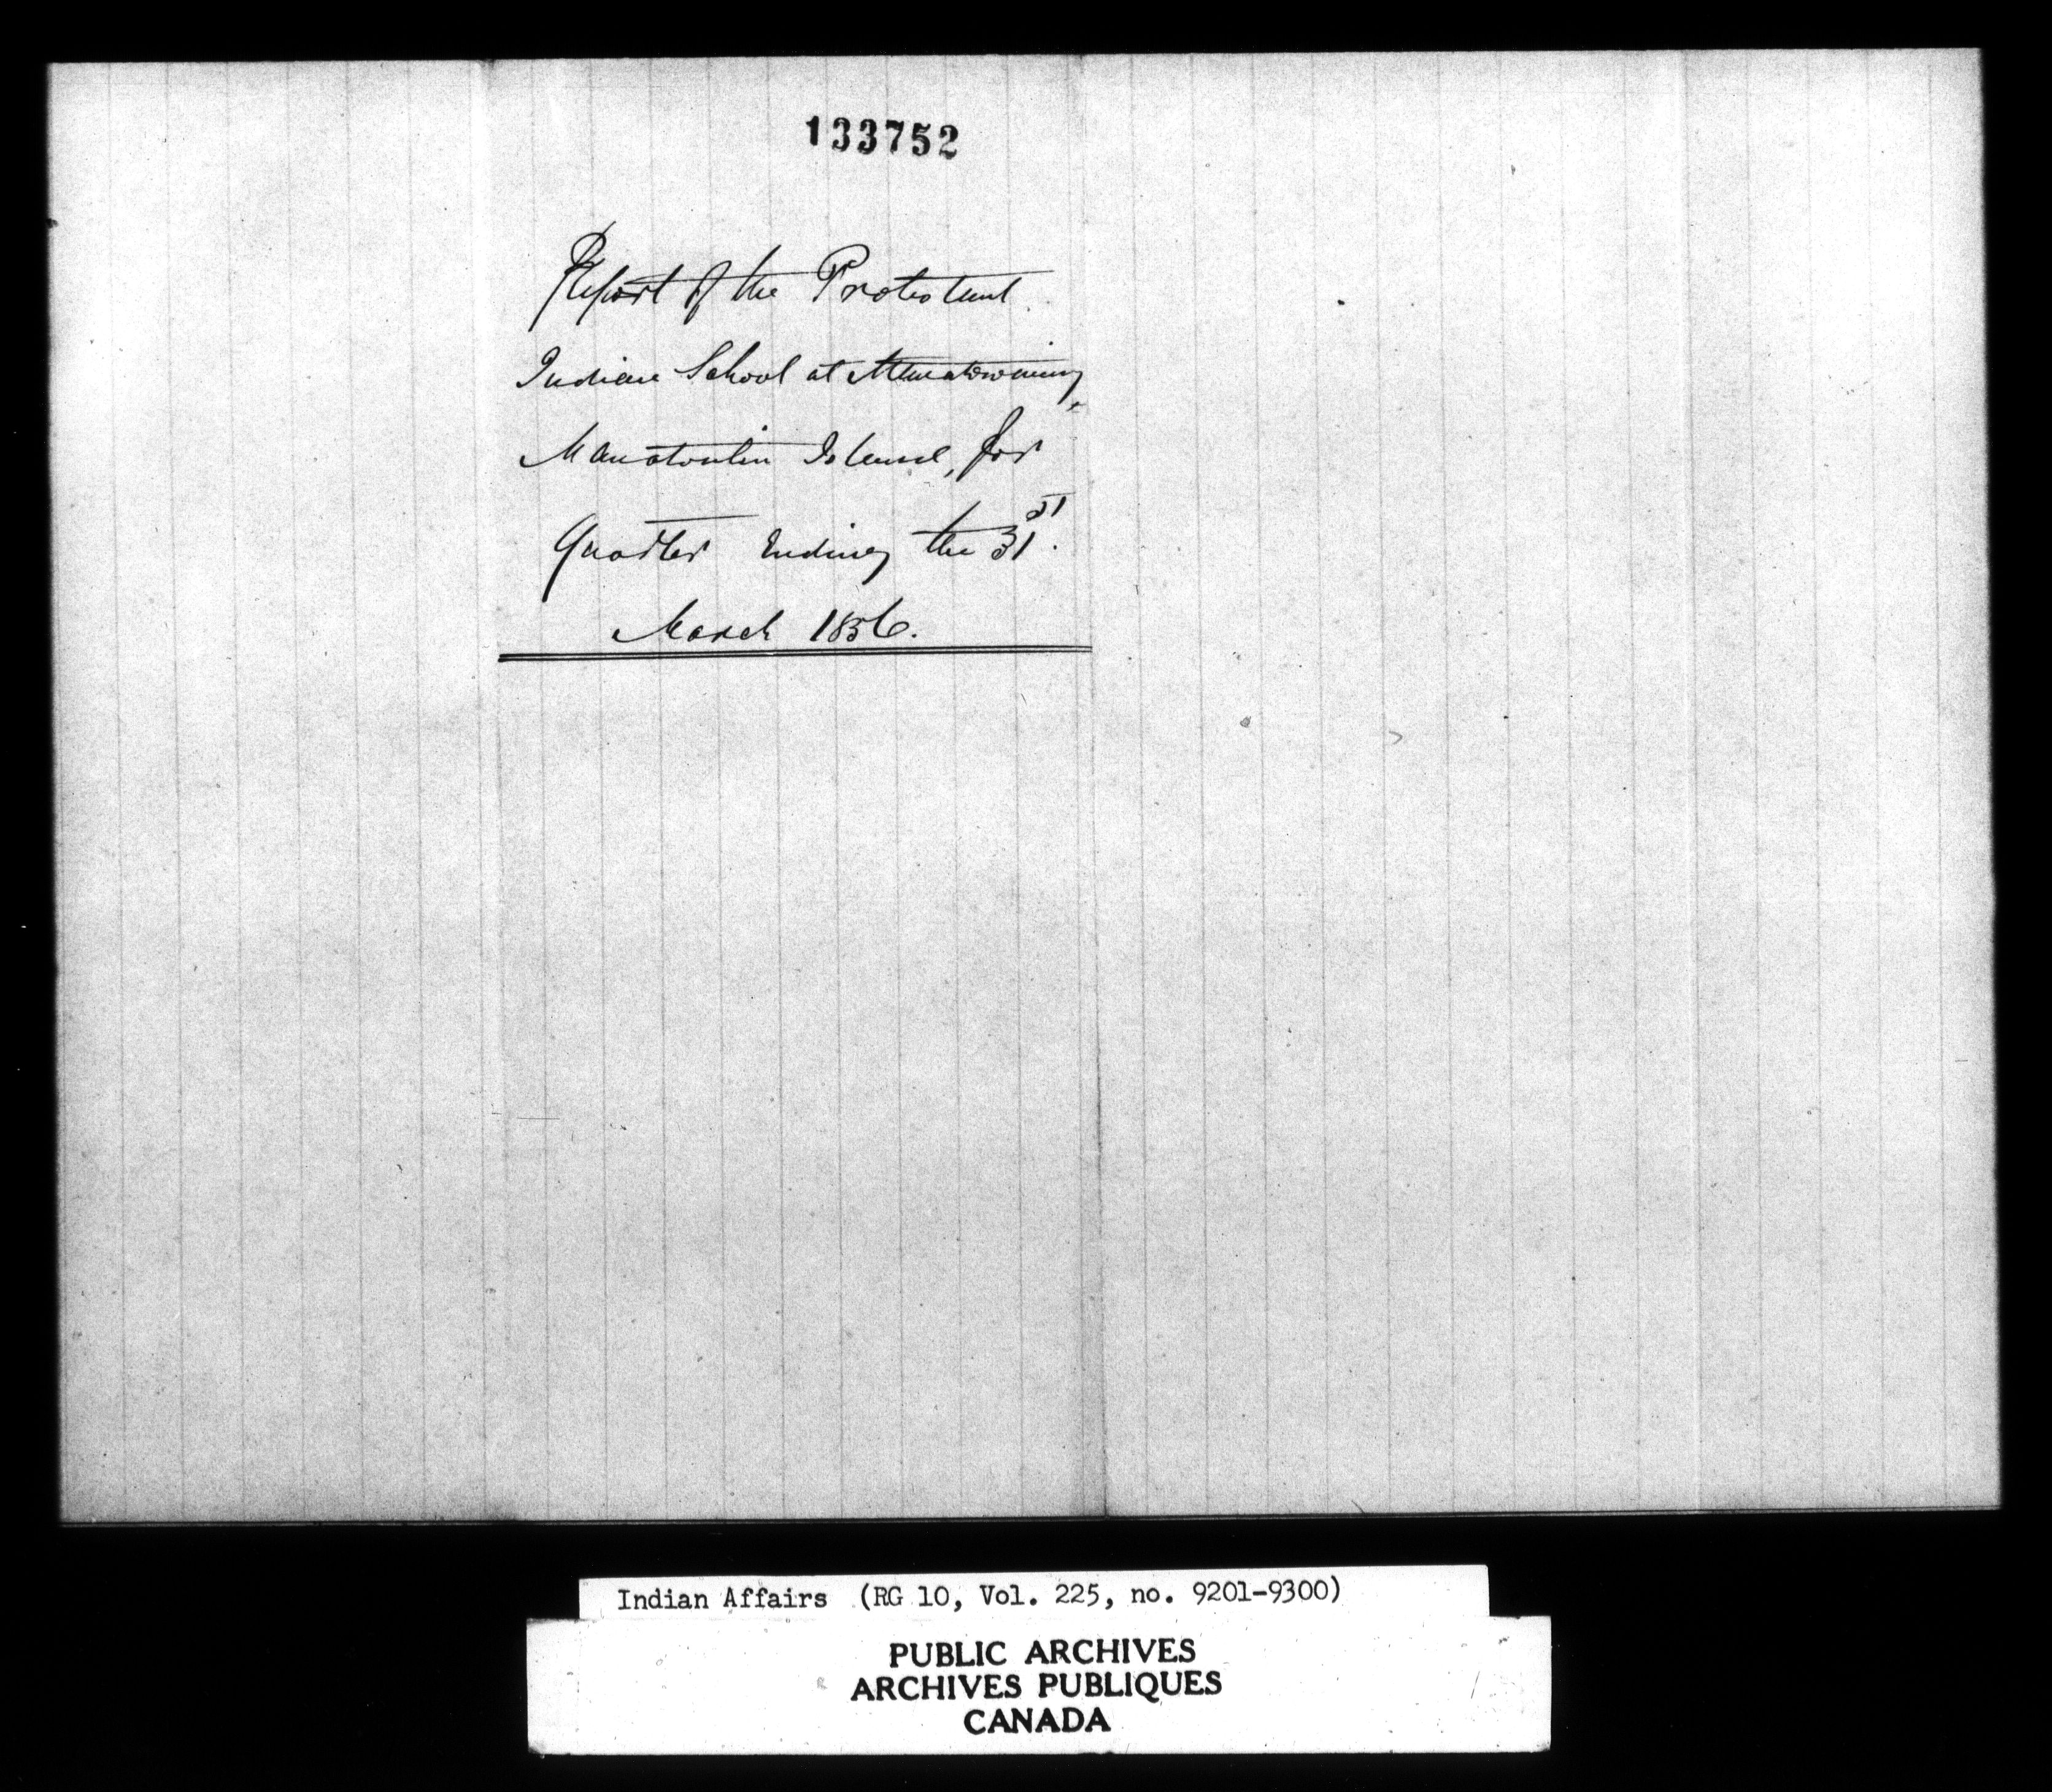 133752
Report of the Protestant
Indian School at Manatowaning,
Manatoulin Island, for
Quarter Ending the 31st.
March 1856.
Indian Affairs (RG 10, Vol. 225, no. 9201-9300)
PUBLIC ARCHIVES
ARCHIVES PUBLIQUES
CANADA